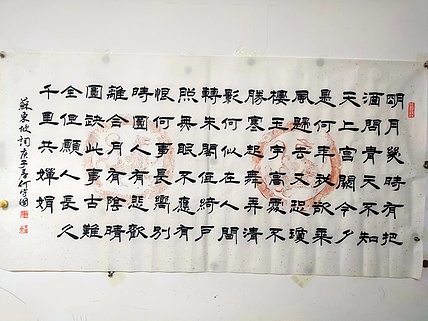 明月幾時有把
酒問青天不知
天上宮闕今夕
是何年我欲乘
風歸去又恐瓊
樓玉宇高處不
勝寒起舞弄清
影何似在人間
轉朱閣低綺戶
照無眠不應有
恨何事長嚮別
時圓人有悲歡
離合月有陰晴
圓缺此事古難
全但願人長久
千里共嬋娟
蘇東坡詞庚子春